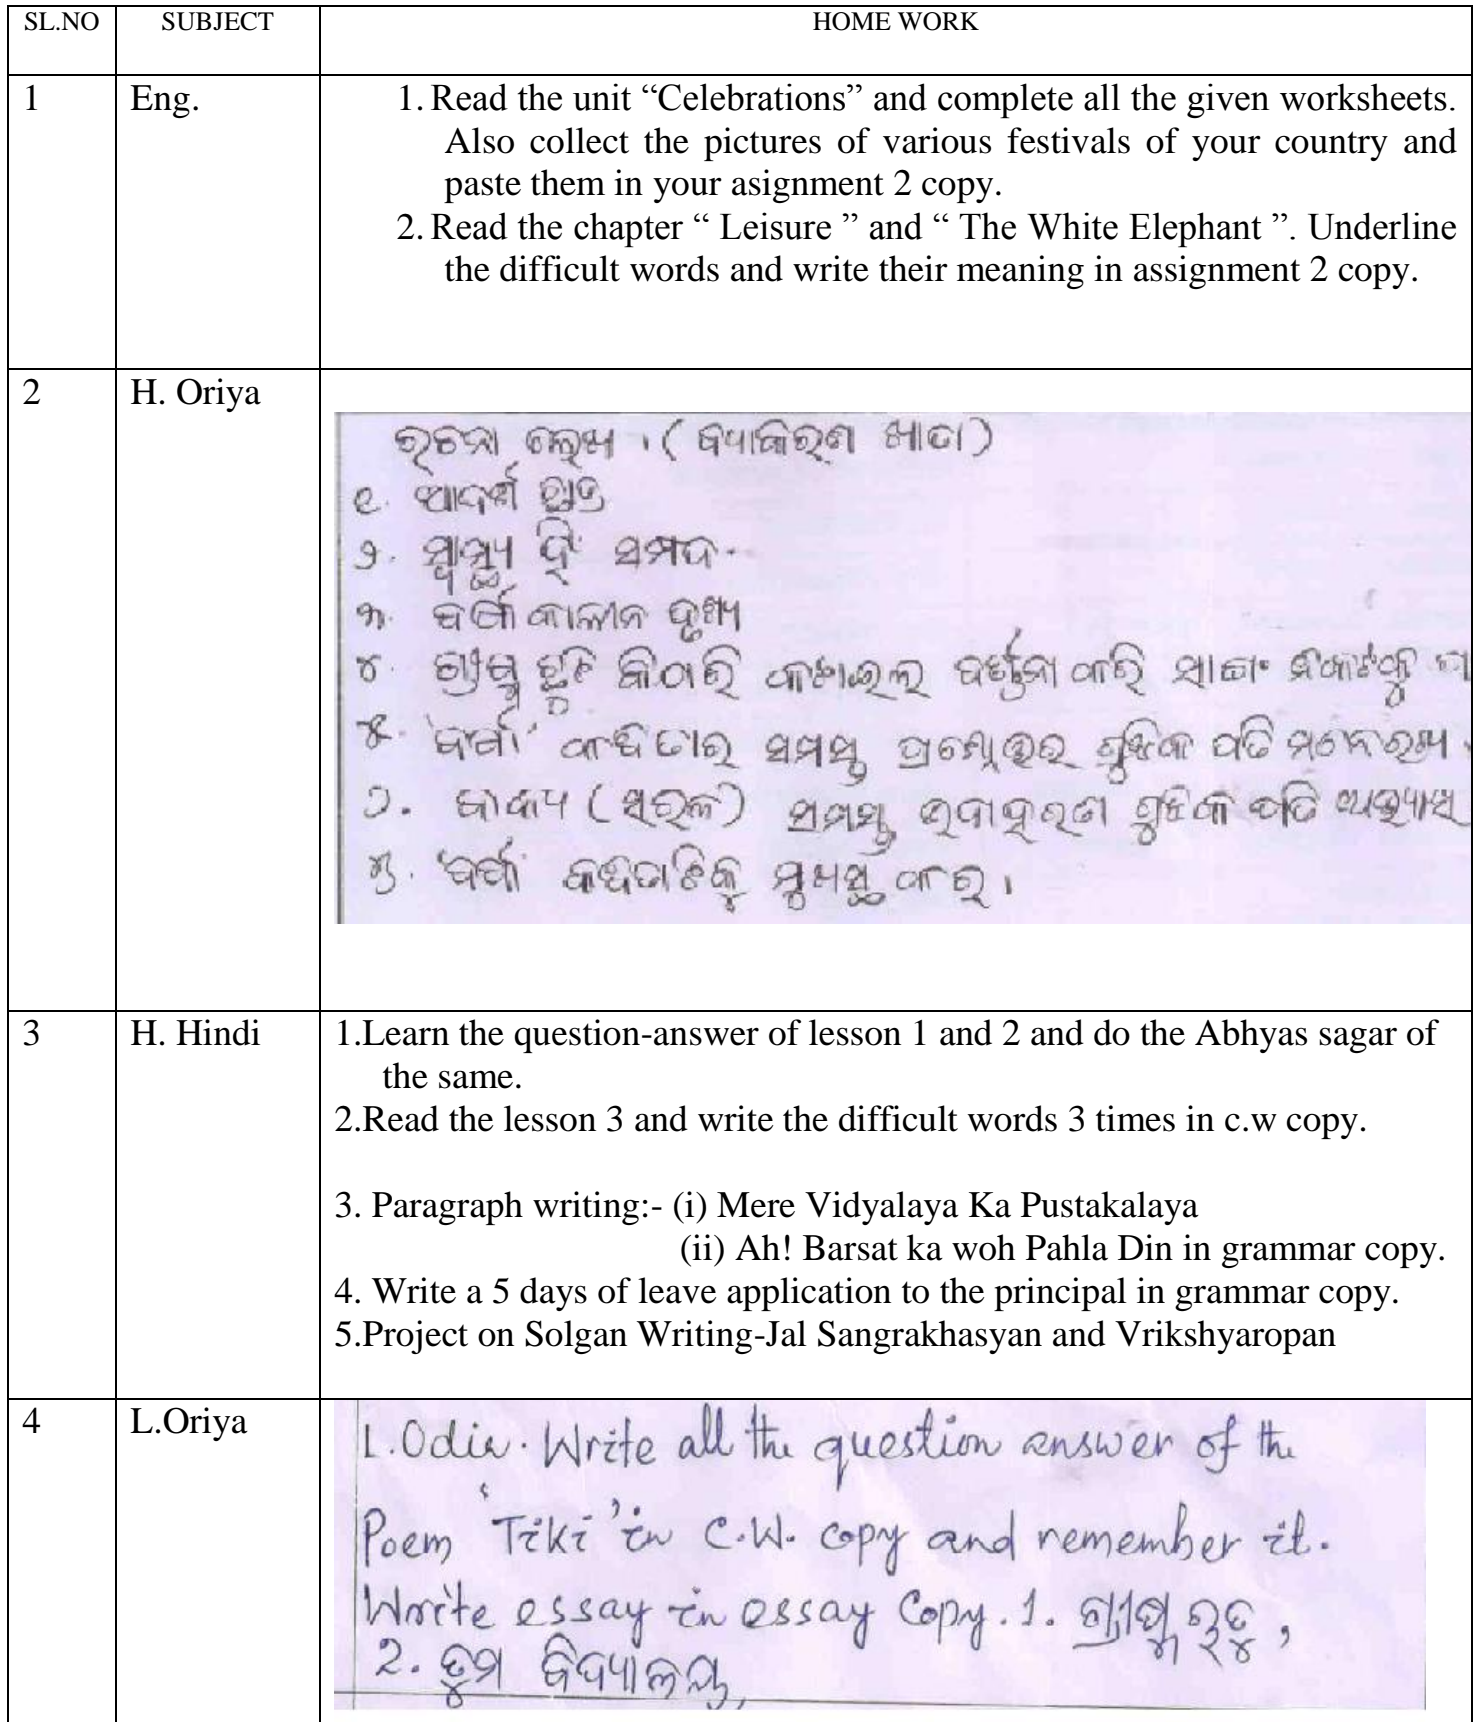 SL.NO SUBJECT HOME WORK
1 Eng. 1. Read the unit “Celebrations” and complete all the given worksheets.
Also collect the pictures of various festivals of your country and
paste them in your asignment 2 copy.
2. Read the chapter “ Leisure ” and “ The White Elephant ”. Underline
the difficult words and write their meaning in assignment 2 copy.
2 H. Oriya
ରଚନା ଲେଖ । ( ବ୍ୟାକରଣ ଖାତା )
୧. ଆଦର୍ଶ ଛାତ୍ର
୨. ସ୍ୱାସ୍ଥ୍ୟ ହିଁ ସମ୍ପଦ
୩. ବର୍ଷା କାଳୀନ ଦୃଶ୍ୟ
୪. ଗ୍ରୀଷ୍ମ ଛୁଟି କିପରି କଟାଇଲ ବର୍ଣ୍ଣନା କରି ସାଙ୍ଗ ନିକଟକୁ
୫. 'ବର୍ଷା' କବିତାର ସମସ୍ତ ପ୍ରଶ୍ନୋତ୍ତର ଗୁଡ଼ିକ ପଢି ମନେରଖ
୬. ବାକ୍ୟ (ସରଳ) ସମସ୍ତ ଉଦାହରଣ ଗୁଡ଼ିକ ପଢି
୭. 'ବର୍ଷା' କବିତାଟିକୁ ମୁଖସ୍ଥ କର ।
3 H. Hindi 1.Learn the question-answer of lesson 1 and 2 and do the Abhyas sagar of
the same.
2.Read the lesson 3 and write the difficult words 3 times in c.w copy.
3. Paragraph writing:- (i) Mere Vidyalaya Ka Pustakalaya
(ii) Ah! Barsat ka woh Pahla Din in grammar copy.
4. Write a 5 days of leave application to the principal in grammar copy.
5.Project on Solgan Writing-Jal Sangrakhasyan and Vrikshyaropan
4 L.Oriya
L.Odia. Write all the question answer of the
Poem 'Tiki' in C.W. copy and remember it.
Write essay in essay Copy. 1. ଗ୍ରୀଷ୍ମ ଋତୁ ,
2. ତୁମ ବିଦ୍ୟାଳୟ